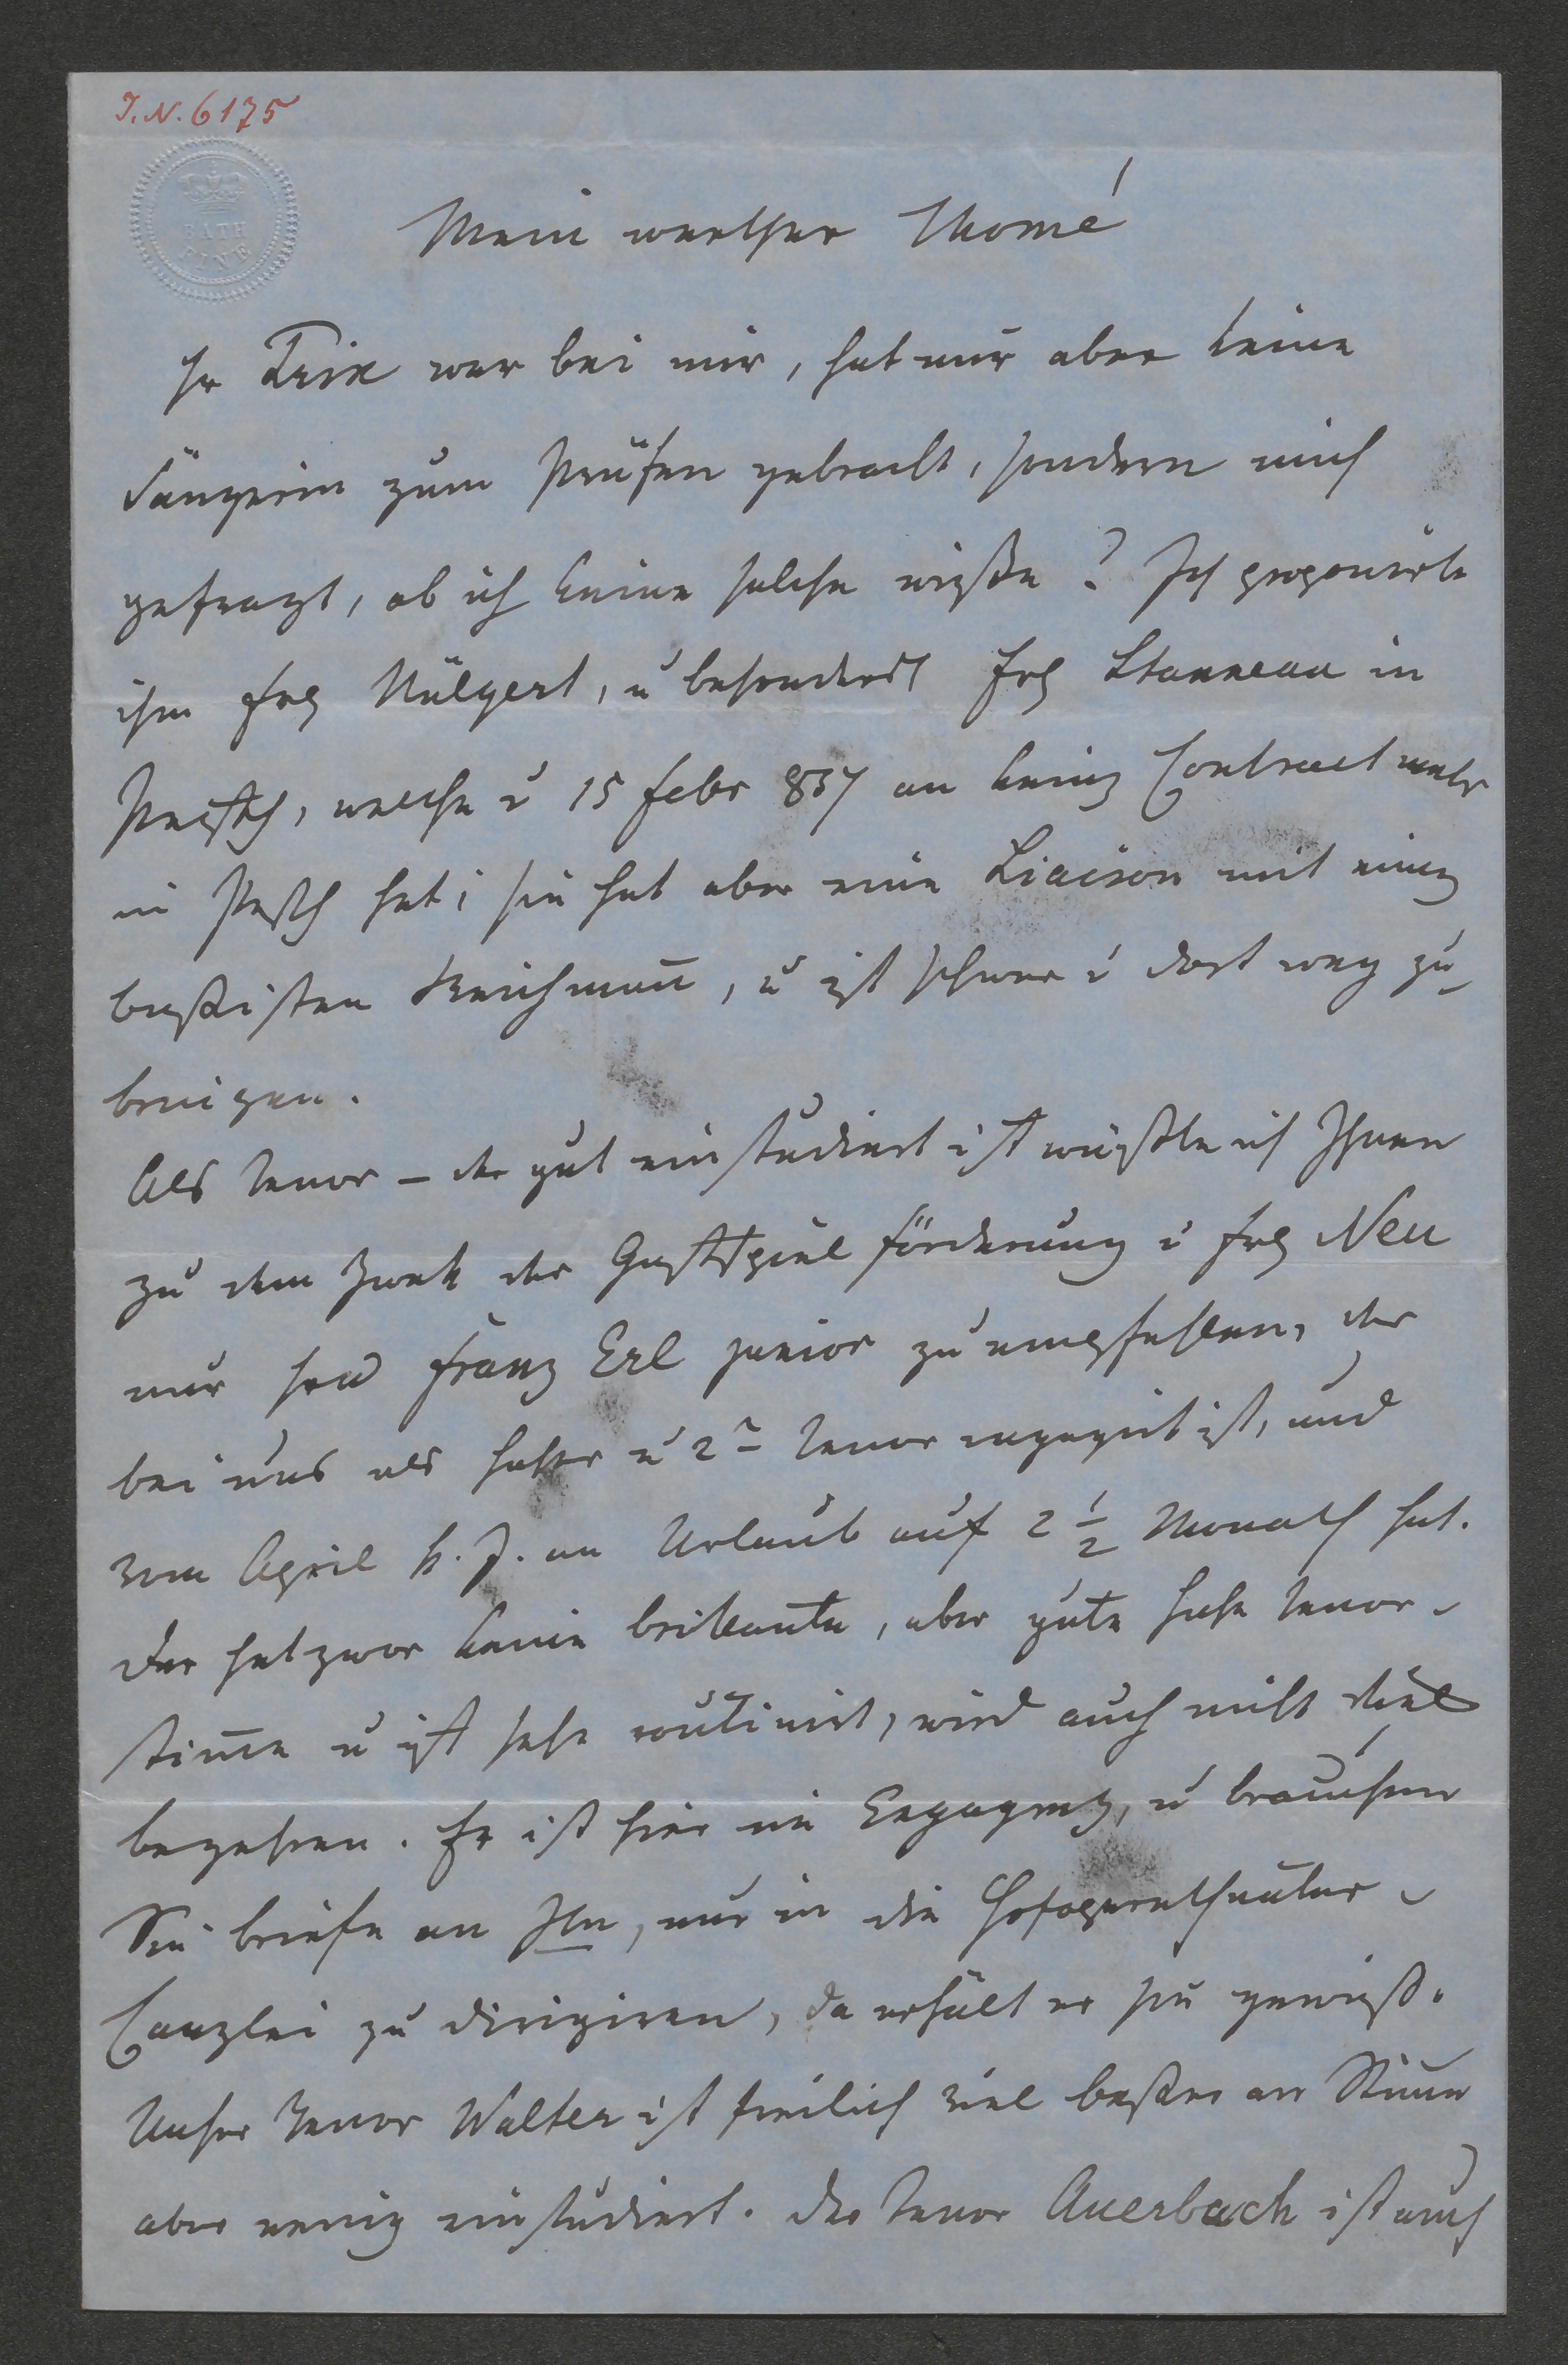 I.N. 6175
BATH
Mein werther Thomé
Hr Erik war bei mir, hat mir aber keine
Sängerin zum Prüfen gebracht, sondern mich
gefragt, ob ich keine solche wißte? Ich proponirte
ihm Frl, u besonders Frl in
Pesth, welche v 15 Febr 857 an keinen Contract mehr
in Pesth hat; sie hat aber eine Liaison mit einem
Bassisten Reichmann, u ist schwer v dort weg zu
bringen.
Als Tenor – der gut einstudiert ist wüßte ich Ihnen
zu dem Zwek der Gastspiel förderung v Frl Neu
nur Franz Erl junior zu empfehlen, der
bei uns als hoher u 2r Tenor engagirt ist, und
vom April h. J. an Urlaub auf 2 1/2 Monath hat.
Der hat zwar keine brillante, aber gute hohe Tenor-
stimme u ist sehr routinirt, wird auch nicht viel
begehren. Er ist hier im Engagement, u brauchen
Sie Briefe an Ihn, nur in die Hofoperntheater-
Canzlei zu dirigiren, da erhält er sie gewiß.
Unser Tenor Walter ist freilich viel besser an Stimme
aber wenig einstudiert. Der Tenor Auerbach ist auch